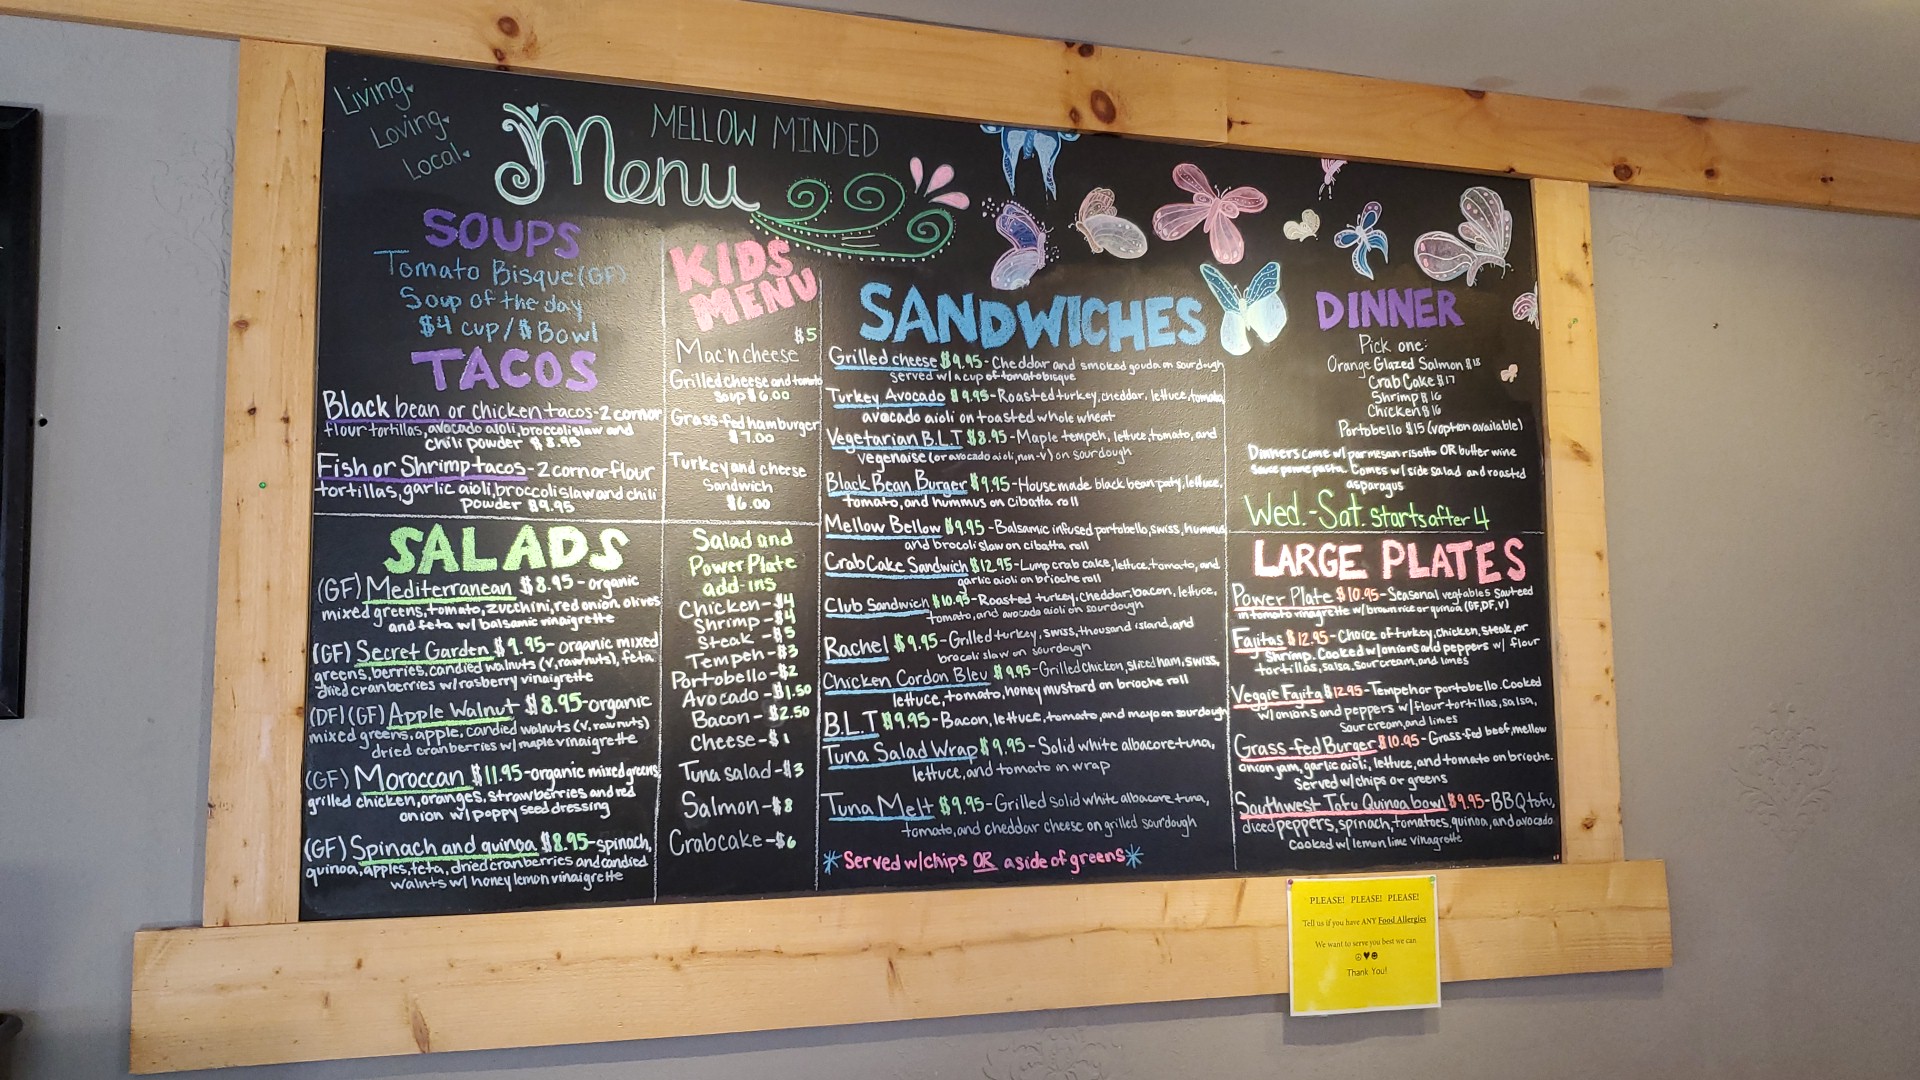 Living.
Loving.
Local.
MELLOW MINDED
Menu
SOUPS
Tomato Bisque (GF)
Soup of the day
$4 cup/$ Bowl
TACOS
Black bean or chicken tacos-2 corn or
flour tortillas, avocado aioli, broccoli slaw and
chili powder $8.95
Fish or Shrimp tacos-2 corn or flour
tortillas, garlic aioli, broccoli slaw and chili
powder $9.95
SALADS
(GF) Mediterranean $8.95-organic
mixed greens, tomato, zucchini, red onion, olives
and feta w/ balsamic vinaigrette
(GF) Secret Garden $9.95-organic mixed
greens, berries, candied walnuts (v, raw nuts), feta
dried cranberries w/ rasberry vinaigrette
(DF) (GF) Apple Walnut $8.95-organic
mixed greens, apple, candied walnuts (v, raw nuts)
dried cranberries w/ maple vinaigrette
(GF) Moroccan $11.95-organic mixed greens,
grilled chicken, oranges, strawberries and red
onion w/ poppy seed dressing
(GF) Spinach and quinoa $8.95-spinach,
quinoa, apples, feta, dried cranberries and candied
walnts w/ honey lemon vinaigrette
KIDS
MENU
$5
Mac'n cheese
Grilled cheese and tomato
soup $6.00
Grass-fed hamburger
$7.00
Turkey and cheese
Sandwich
$6.00
Salad and
Power Plate
add-ins
Chicken-$4
Shrimp-$4
Steak-$5
Tempeh-$3
Portobello-$2
Avocado-$1.50
Bacon-$2.50
Cheese-$1
Tuna salad-$3
Salmon-$8
Crabcake-$6
SANDWICHES
Grilled cheese $9.95-Cheddar and smoked gouda on sourdough
served w/ a cup of tomato bisque
Turkey Avocado $9.95-Roasted turkey, cheddar, lettuce, tomato,
avocado aioli on toasted whole wheat
Vegetarian B.L.T $8.95-Maple tempeh, lettuce, tomato, and
vegenaise (or avocado aioli, non-v) on sourdough
Black Bean Burger $9.95-House made black bean paty, lettuce,
tomato, and hummus on cibatta roll
Mellow Bellow $9.95-Balsamic infused portobello, swiss, hummus
and brocoli slaw on cibatta roll
Crab Cake Sandwich $12.95-Lump crab cake, lettuce, tomato, and
garlic aioli on brioche roll
Club Sandwich $10.95-Roasted turkey, cheddar, bacon, lettuce,
tomato, and avocado aioli on sourdough
Rachel $9.95-Grilled turkey, swiss, thousand island, and
brocoli slaw on sourdough
Chicken Cordon Bleu $9.95-Grilled chicken, sliced ham, swiss,
lettuce, tomato, honey mustard on brioche roll
B.L.T $9.95-Bacon, lettuce, tomato, and mayo on sourdough
Tuna Salad Wrap $9.95-Solid white albacore tuna,
lettuce, and tomato in wrap
Tuna Melt $9.95-Grilled solid white albacore tuna,
tomato, and cheddar cheese on grilled sourdough
*Served w/chips OR a side of greens*
DINNER
Pick one:
Orange Glazed Salmon $18
Crab Cake $17
Shrimp $16
Chicken $16
Portobello $15 (v option available)
Dinners come w/ parmesan risotto OR butter wine
sauce penne pasta. Comes w/ side salad and roasted
asparagus
Wed.-Sat. Starts after 4
LARGE PLATES
Power Plate $10.95-Seasonal vegtables Sauteed
in tomato vinagrette w/ brown rice or quinoa (GF, DF, V)
Fajitas $12.95-Choice of turkey, chicken, steak, or
Shrimp. Cooked w/ onions and peppers w/ flour
tortillas, salsa, sour cream, and limes
Veggie Fajita $12.95-Tempeh or portobello. Cooked
w/ onions and peppers w/ flour tortillas, salsa,
sour cream, and limes
Grass-fed Burger $10.95-Grass-fed beef, mellow
onion jam, garlic aioli, lettuce, and tomato on brioche.
served w/ chips or greens
Southwest Tofu Quinoa bowl $9.95-BBQ tofu,
diced peppers, spinach, tomatoes, quinoa, and avocado
cooked w/ lemon lime vinagrette
PLEASE! PLEASE! PLEASE!
Tell us if you have ANY Food Allergies
We want to serve you best we can
☮♥☻
Thank You!